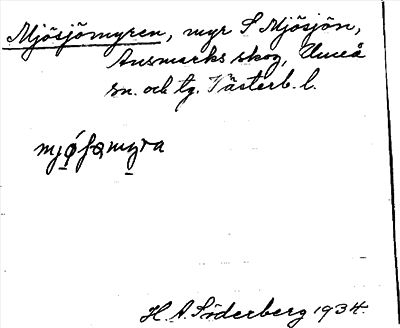 Mjösjömyren, myr S Mjösjön,
Ansmarks skog, Umeå
sn. och tg. Västerb. l.
mjǿsamyra
H. A. Söderberg 1934.